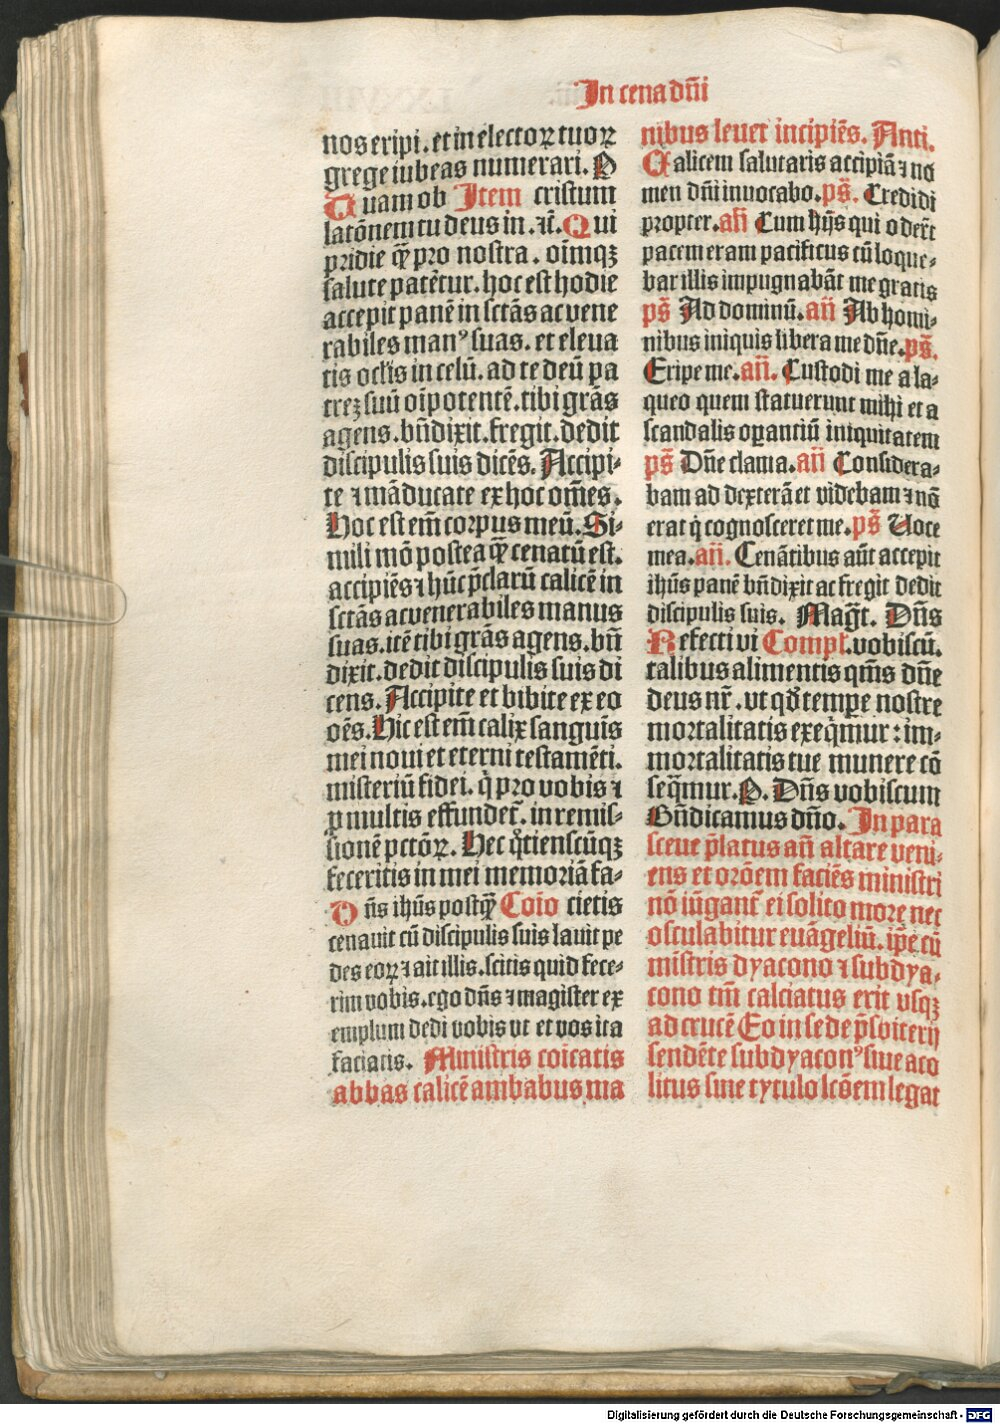 In cena dn̄i
nos eripi. et in electoꝝ tuoꝝ
grege iubeas numerari. P
Quam ob Item cristum
latōnem tu deus in. ⁊č. Qui
pridie qᷓ pro nostra. oīmqꝫ
salute patētur. hoc est hodie
accepit panē in sctās ac vene
rabiles manꝰ suas. et eleua
tis ocl̄is in celū. ad te deū pa
treꝫ suū oīpotentē. tibi grās
agens. bn̄dixit. fregit. dedit
discipulis suis dicēs. Accipi⸗
te ⁊ māducate ex hoc om̄es.
Hoc est em̄ corpus meū. Si⸗
mili mō postea qᷓ cenatū est.
accipiēs ⁊ hūc p̄clarū calicē in
sctās ac venerabiles manus
suas. itē tibi grās agens. bn̄
dixit. dedit discipulis suis di
cens. Accipite et bibite ex eo
oēs. Hic est em̄ calix sanguīs
mei noui et eterni testamēti.
misteriū fidei. q̇ pro vobis ⁊
ꝓ multis effundet᷑. in remis⸗
sionē pctōꝝ. Hec q̄tienscūqꝫ
feceritis in mei memoriā fa⸗
Dn̄s ihūs postqᷓ Coīo cietis
cenauit cū discipulis suis lauit pe
des eoꝝ ⁊ ait illis. scitis quid fece⸗
rim vobis. ego dn̄s ⁊ magister ex
emplum dedi vobis vt et vos ita
faciatis. Ministris coīcatis
abbas calicē ambabus ma
nibus leuet incipiēs. Anti.
Calicem salutaris accipiā ⁊ no
men dn̄i inuocabo. ps̄. Credidi
propter. an̄ Cum hijs qui oder̄t
pacem eram pacificus cū loque⸗
bar illis impugnabāt me gratis
ps̄ Ad dominū. an̄ Ab homi⸗
nibus iniquis libera me dn̄e. ps̄.
Eripe me. an̄. Custodi me a la⸗
queo quem statuerunt mihi et a
scandalis oꝑantiū iniquitatem
ps̄ Dn̄e clama. an̄ Considera⸗
bam ad dexterā et videbam ⁊ nō
erat q̇ cognosceret me. ps̄ Uoce
mea. an̄. Cenātibus aūt accepit
ihūs panē bn̄dixit ac fregit dedit
discipulis suis. Magt̄. Dn̄s
Refecti vi Compl̄. vobiscū.
talibus alimentis qm̄s dn̄e
deus nr̄. vt qd̄ tempe nostre
mortalitatis exeq̄mur: im⸗
mortalitatis tue munere cō
seq̄mur. P. Dn̄s vobiscum
Bn̄dicamus dn̄o. In para
sceue p̄latus an̄ altare veni⸗
ens et orōem faciēs ministri
nō iūgant᷑ ei solito more nec
osculabitur euāgeliū. ip̄e cū
mīstris dyacono ⁊ subdya⸗
cono tm̄ calciatus erit vsqꝫ
ad crucē Eo in sede p̄sbiterij
sendēte subdyaconꝰ siue aco
litus sine tytulo lcōem legat
Digitalisierung gefördert durch die Deutsche Forschungsgemeinschaft - DFG